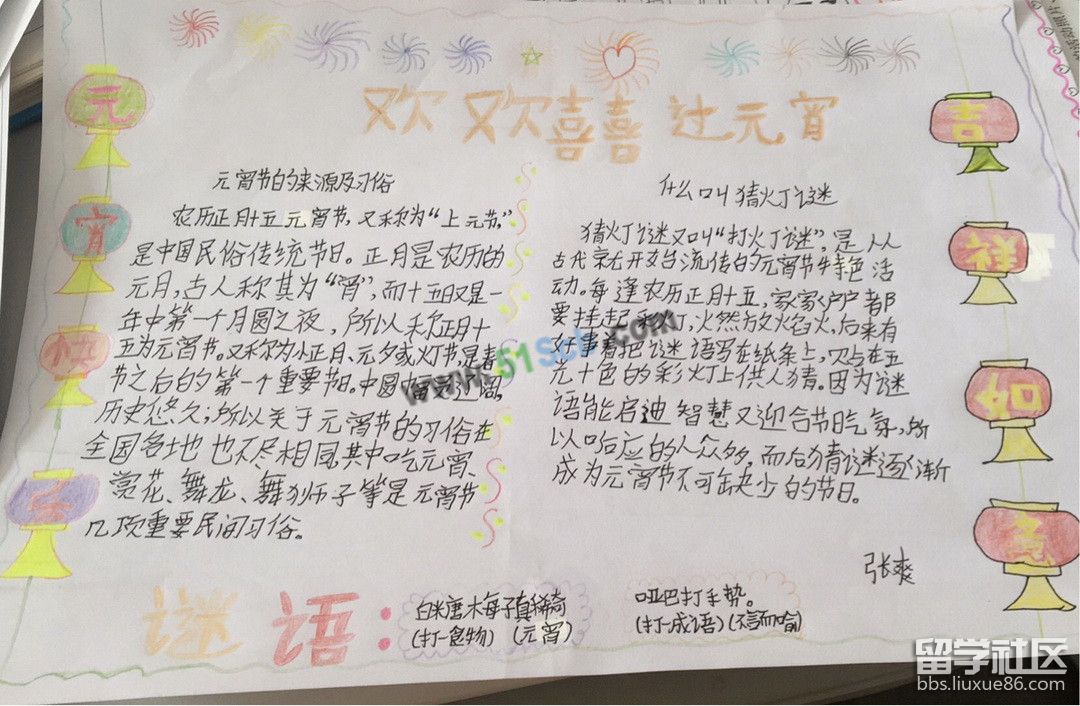 欢欢喜喜过元宵
元
宵
快
乐
吉
祥
如
意
元宵节的来源及习俗
农历正月十五元宵节，又称为“上元节，”
是中国民俗传统节日。正月是农历的
元月，古人称其为“宵”，而十五日又是一
年中第一个月圆之夜，所以称正月十
五为元宵节。又称为小正月、元夕或灯节，是春
节之后的第一个重要节日。中国幅员辽阔，
历史悠久；所以关于元宵节的习俗在
全国各地也不尽相同，其中吃元宵、
赏花、舞龙、舞狮子等是元宵节
几项重要民间习俗。
什么叫猜灯谜
猜灯谜又叫“打灯谜”，是从
古代就开始流传的元宵节特色活
动。每逢农历正月十五，家家户户都
要挂起彩灯，燃放焰火，后来有
好事者把谜语写在纸条上，贴在五
光十色的彩灯上供人猜。因为谜
语能启迪智慧又迎合节日气氛，所
以响应的人众多，而后猜谜逐渐
成为元宵节不可缺少的节日。
张爽
谜语：
白糖木每子真稀奇
(打一食物) (元宵)
哑巴打手势。
(打一成语) (不言而喻)
www.51Scb.com
留学社区
bbs.liuxue86.com